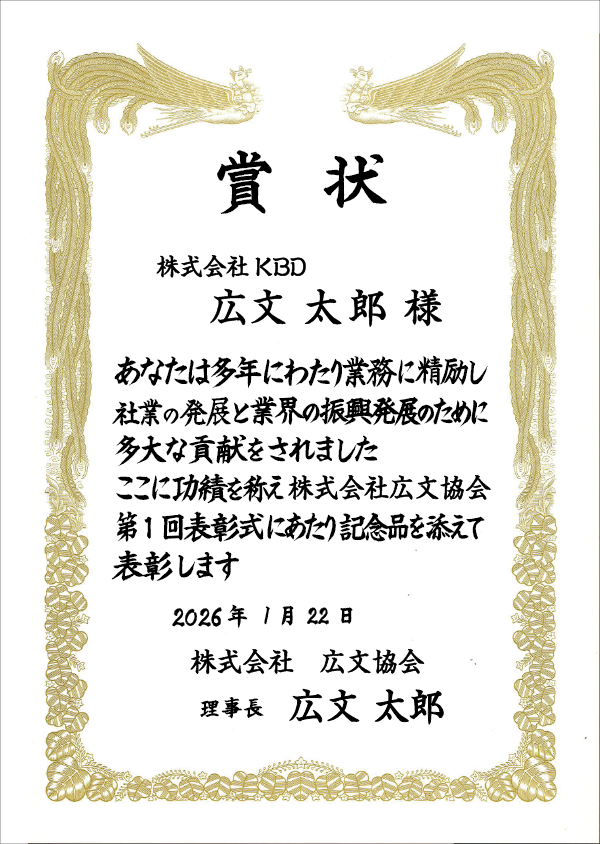 賞状
株式会社 KBD
広文 太郎 様
あなたは多年にわたり業務に精励し
社業の発展と業界の振興発展のために
多大な貢献をされました
ここに功績を称え株式会社広文協会
第1回表彰式にあたり記念品を添えて
表彰します
2026年 1月 22日
株式会社 広文協会
理事長 広文 太郎